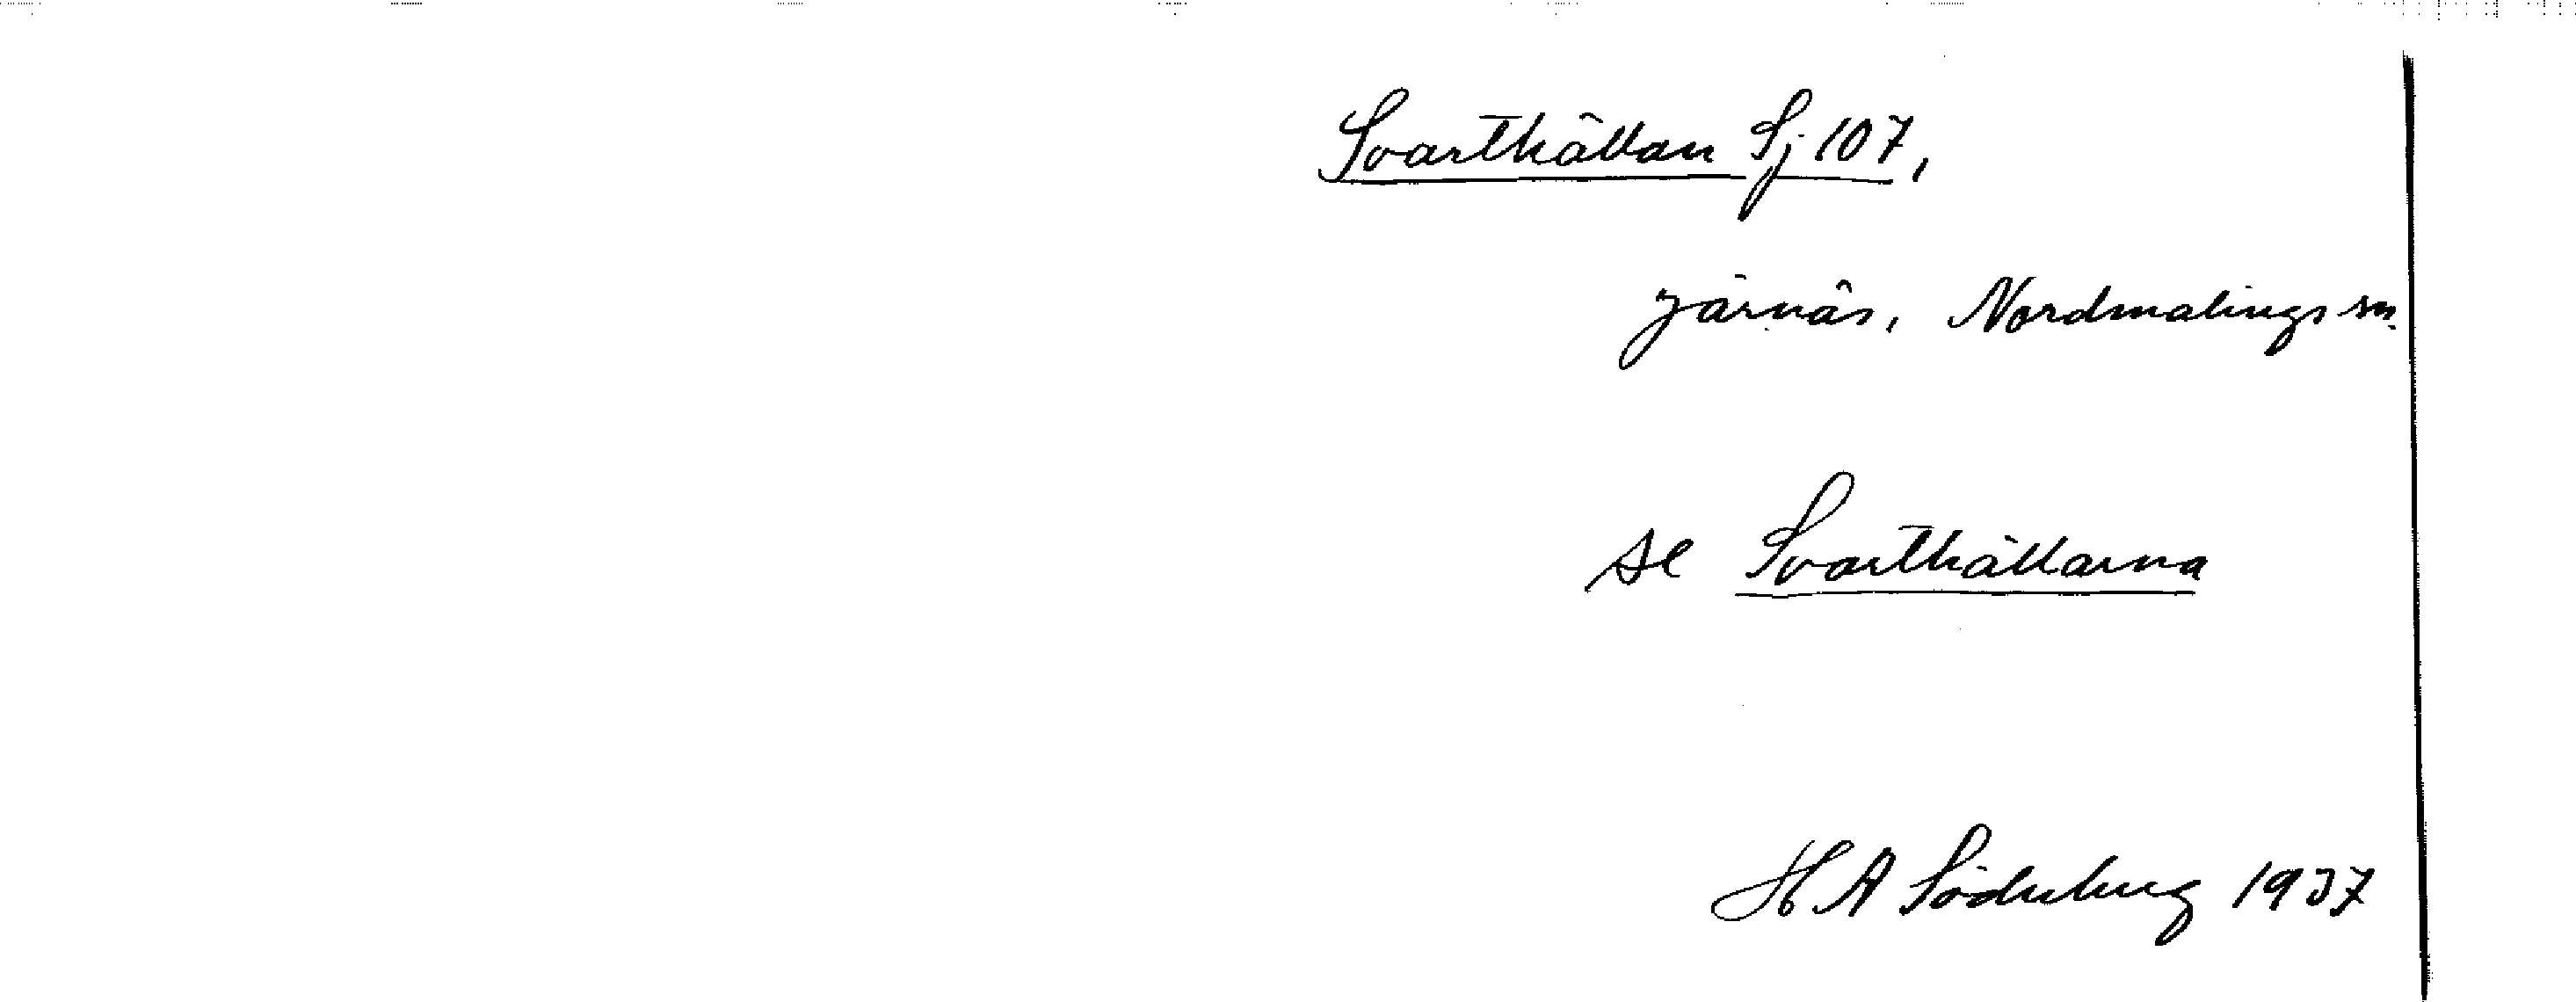 Svartkällan Sj 107,
Järnäs, Nordmalings sn.
se Svartkällarna
H A Söderberg 1937